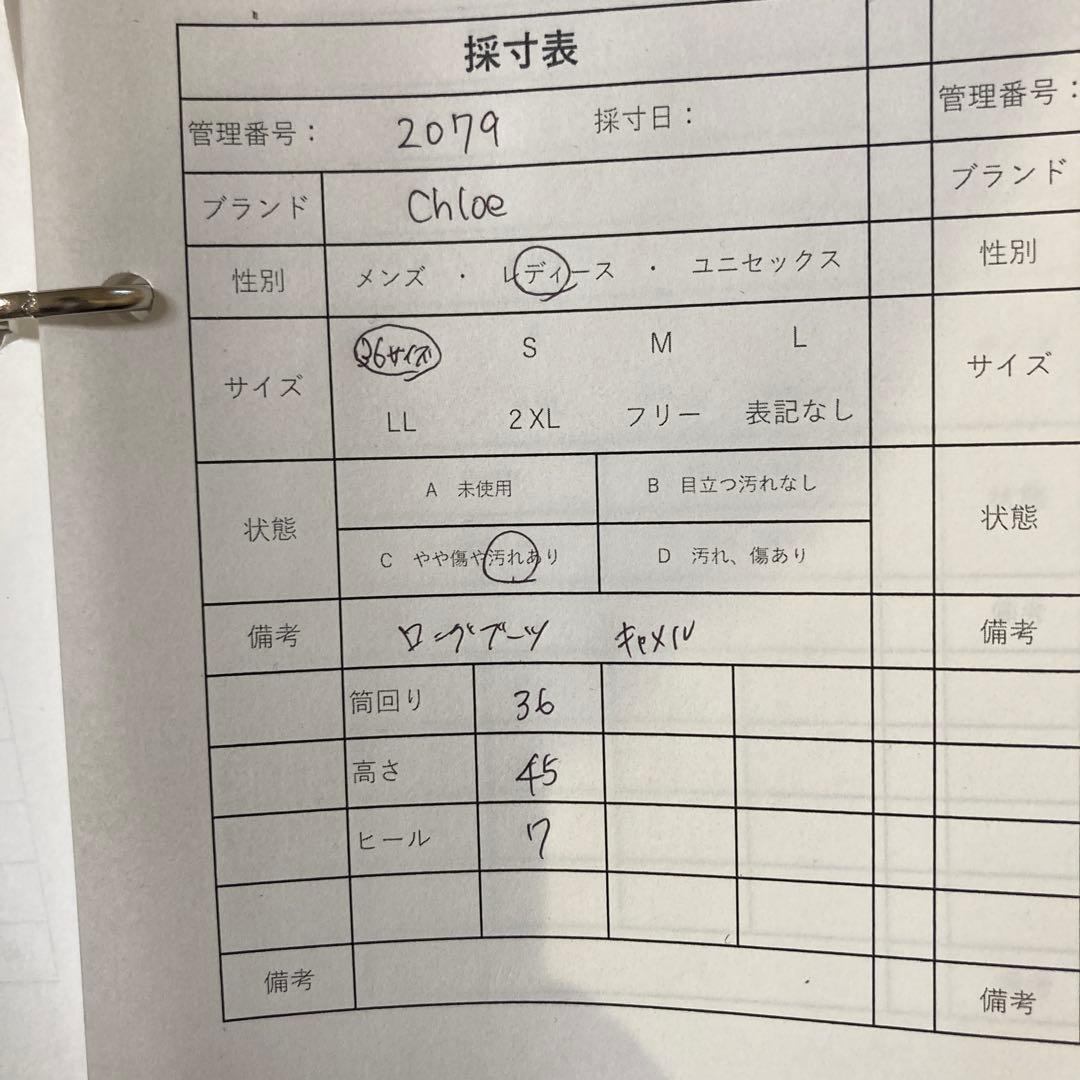 採寸表
管理番号： 2079 採寸日：
ブランド Chloe
性別 メンズ ・ レディース ・ ユニセックス
サイズ 36サイズ S M L
LL 2XL フリー 表記なし
状態 A 未使用 B 目立つ汚れなし
C やや傷や汚れあり D 汚れ、傷あり
備考 ロングブーツ キャメル
筒回り 36
高さ 45
ヒール 7
備考
管理番号：
ブランド
性別
サイズ
状態
備考
備考